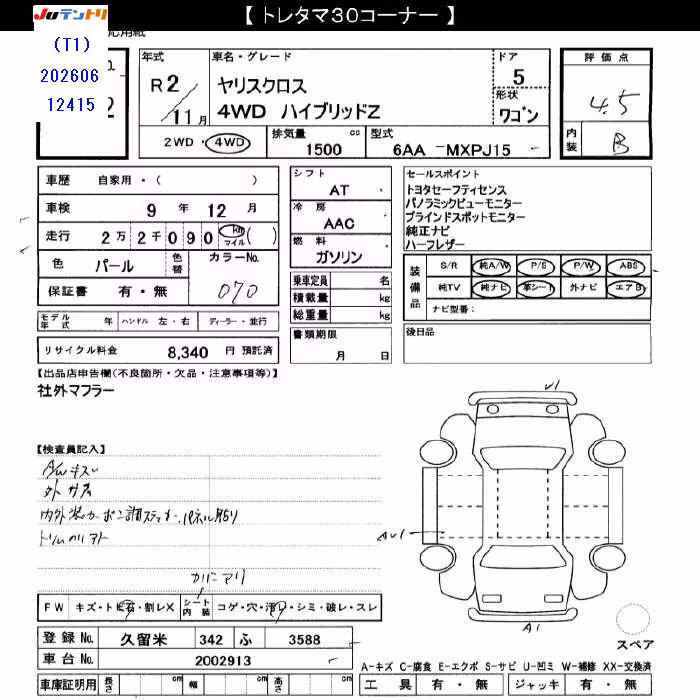 【 トレタマ30コーナー 】
JUテントリ
(T1)
202606
12415
年式
R2/11月
車名・グレード
ヤリスクロス
4WD ハイブリッドZ
ドア
5
形状
ワゴン
評価点
4.5
内装
B
2WD・4WD
排気量
1500 cc
型式
6AA -MXPJ15
車歴 自家用・( )
車検 9年 12月
走行 2万 2千090 km マイル ( )
色 パール 色替
カラーNo.
070
保証書 有・無
モデル年式 年 ハンドル 左・右 ディーラー・並行
リサイクル料金 8,340 円 預託済
シフト
AT
冷房
AAC
燃料
ガソリン
乗車定員 名
積載量 kg
総重量 kg
書類期限
月 日
セールスポイント
トヨタセーフティセンス
パノラミックビューモニター
ブラインドスポットモニター
純正ナビ
ハーフレザー
装備品
S/R 純A/W P/S P/W ABS
純TV 純ナビ 革シート 外ナビ エアB
ナビ型番:
後日品
【出品店申告欄(不良箇所・欠品・注意事項等)】
社外マフラー
【検査員記入】
A/Wキズ
外サス
トリムクリアト
FW キズ・トビ石・割レX
シート内装 コゲ・穴・汚レ・シミ・破レ・スレ
登録 No. 久留米 342 ふ 3588
車台 No. 2002913
車庫証明用 長さ cm 幅 cm 高さ cm
U1
AU1
A1
スペア
A-キズ C-腐食 E-エクボ S-サビ U-凹ミ W-補修 XX-交換済
工具 有・無 ジャッキ 有・無